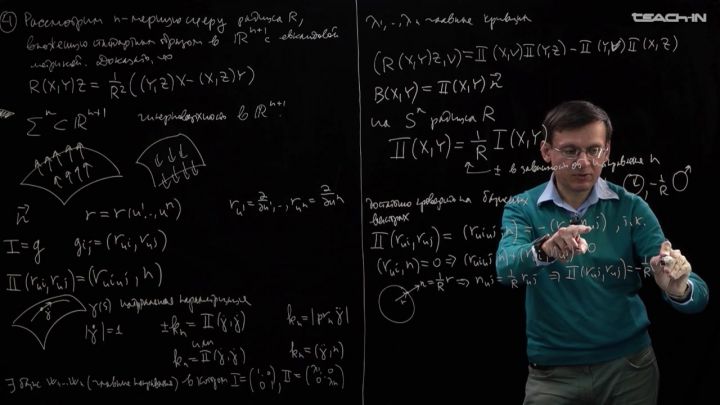 ④ Рассмотрим n-мерную сферу радиуса R,
вложенную стандартным образом в ℝⁿ⁺¹ с евклидовой
метрикой. Доказать, что
R(X,Y)Z = 1/R² ((Y,Z)X − (X,Z)Y)
Σⁿ ⊂ ℝⁿ⁺¹ гиперповерхность в ℝⁿ⁺¹.
n⃗ r = r(u¹...uⁿ) r_u¹ = ∂/∂u¹, ..., r_uⁿ = ∂/∂uⁿ
I = g g_ij = (r_ui, r_uj)
II(r_ui, r_uj) = (r_uiuj, n)
γ(s) натуральная параметризация
|γ̇| = 1 ±k_n = II(γ̇, γ̇) k_n = |pr_n γ̈|
или
k_n = II(γ̇, γ̇) k_n = (γ̈, n)
∃ базис w₁...w_n (главные направления) в котором I = (1 0 0 1), II = (λ₁ 0 0 λ_n)
λ₁, .., λ_n главные кривизны
(R(X,Y)Z,V) = II(X,V)II(Y,Z) − II(Y,V)II(X,Z)
B(X,Y) = II(X,Y) n⃗
на Sⁿ радиуса R
II(X,Y) = 1/R I(X,Y)
± в зависимости от направления n
−1/R
Достаточно проверить на базисных
векторах
II(r_ui, r_uj) = (r_uiuj, n) = −(r_ui, n_uj), т.к.
(r_ui, n) = 0 ⇒ (r_uiuj, n) + (r_ui, n_uj) = 0
n = 1/R r ⇒ n_uj = 1/R r_uj ⇒ II(r_ui, r_uj) = −R
TEACH-IN